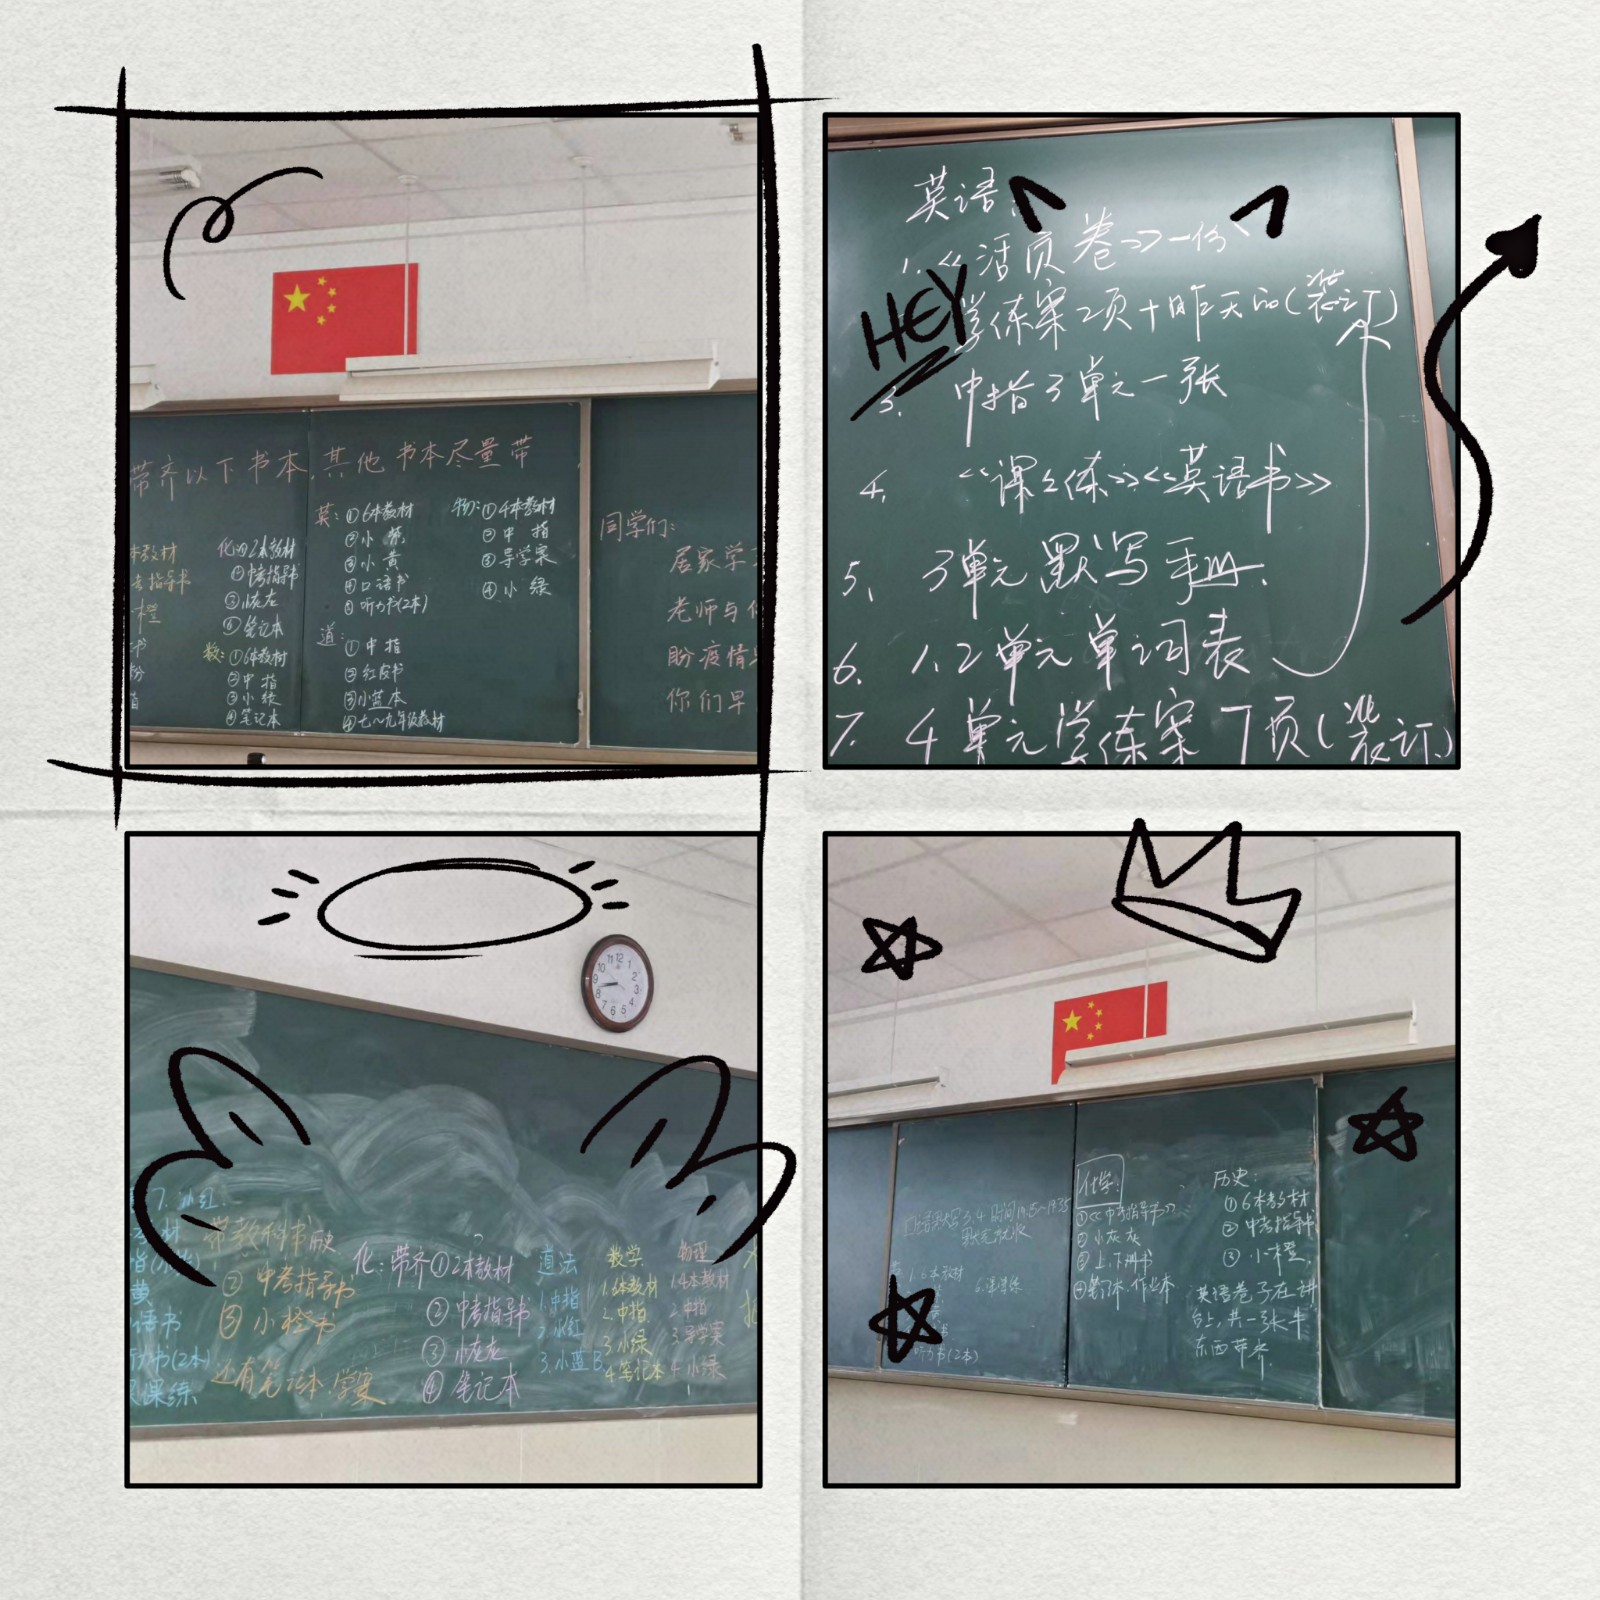 带齐以下书本,其他书本尽量带
本教材
考指导书
橙
化:①2本教材
②中考指导书
③小灰灰
④笔记本
数:①6本教材
②中指
③小绿
④笔记本
英:①6本教材
②小
③小黄
④口语书
⑤听力书(2本)
道:①中指
②红皮书
③小蓝本
④七~九年级教材
物:①4本教材
②中指
③导学案
④小绿
同学们:
居家学
老师与
盼疫情
你们早
英语:
1.《活页卷》一份
学练案2页+昨天的(装订)
HEY
3. 中指3单元一张
4. 《课课练》《英语书》
5、3单元默写手册.
6、1、2单元单词表
7. 4单元学练案7页(装订)
7.小红:
黄
语书
听力书(2本)
课练
带教科书
② 中考指导书
③ 小橙书
还有笔记本.学案
化:带齐①2本教材
②中考指导书
③小灰灰
④笔记本
道法
1.中指
2.小红
3.小蓝B
数学
1.6本教材
2.中指
3.小绿
4.笔记本
物理
1.4本教材
2.中指
3.导学案
4.小绿
化学:
①《中考指导书》
②小灰灰
③上.下册书
④笔记本.作业本
历史:
①6本教材
②中考指导书
③小橙.
英语卷子在讲
台上,共一张半
东西带齐
听力书(2本)